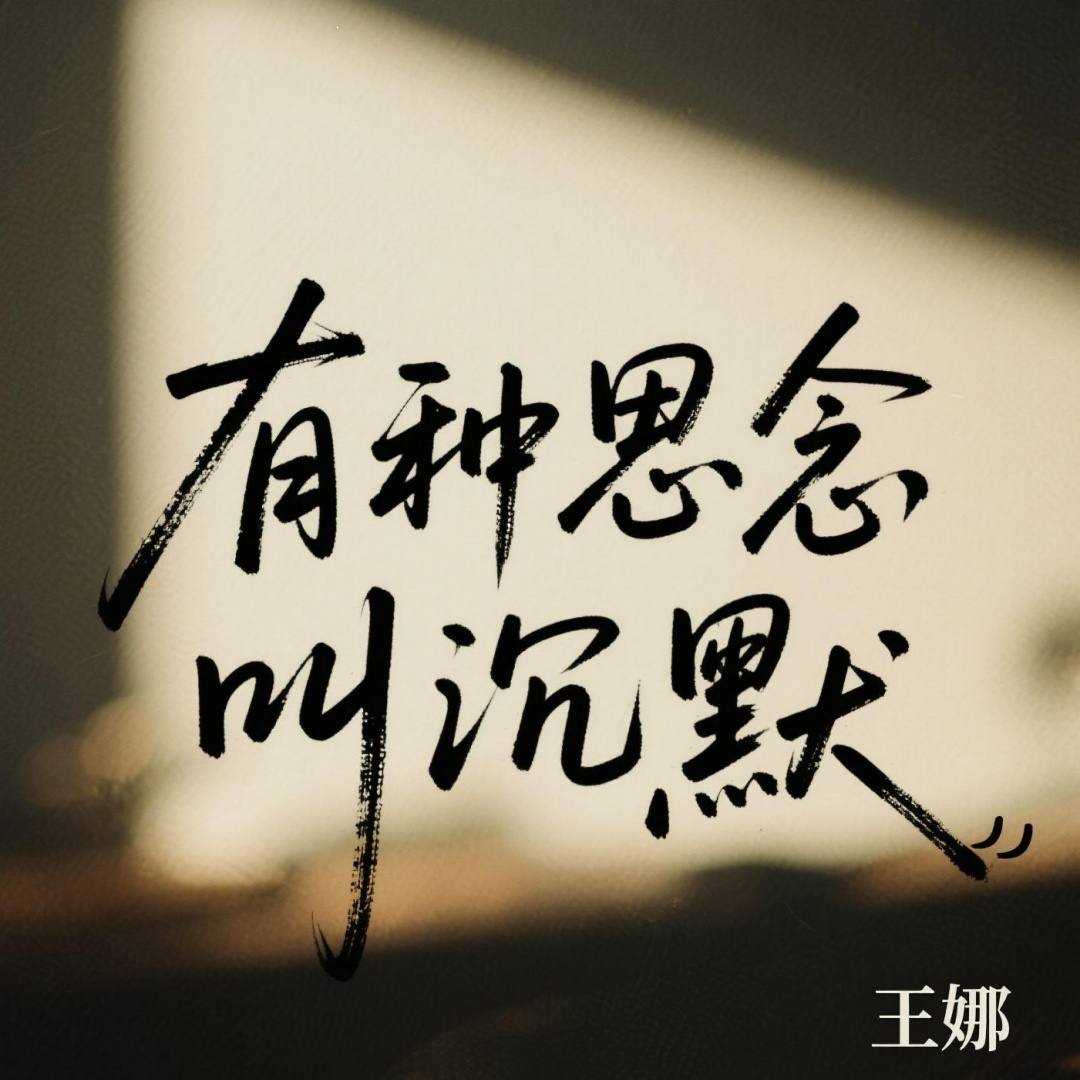 有种思念
叫沉默
王娜